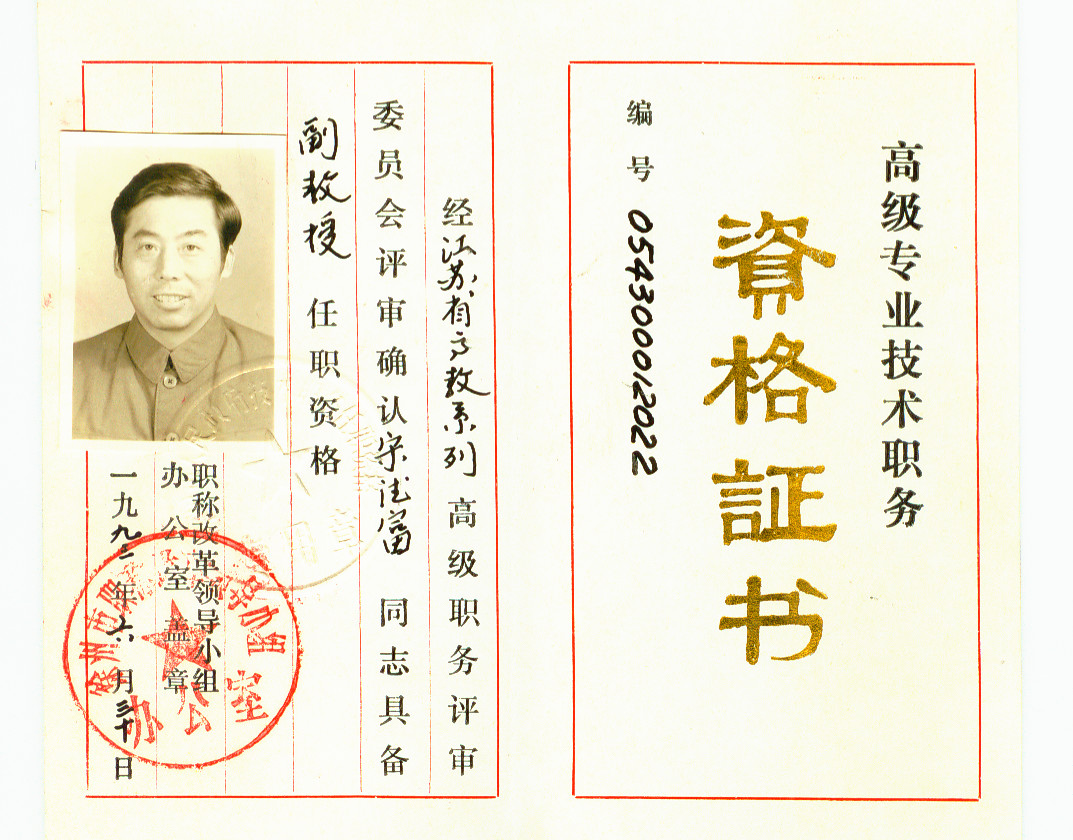 高级专业技术职务
資格証书
编号 054300012022
经江苏省高教系列高级职务评审
委员会评审确认宋法富同志具备
副教授 任职资格
职称改革领导小组
办公室盖章
一九九二年六月三十日
办公室